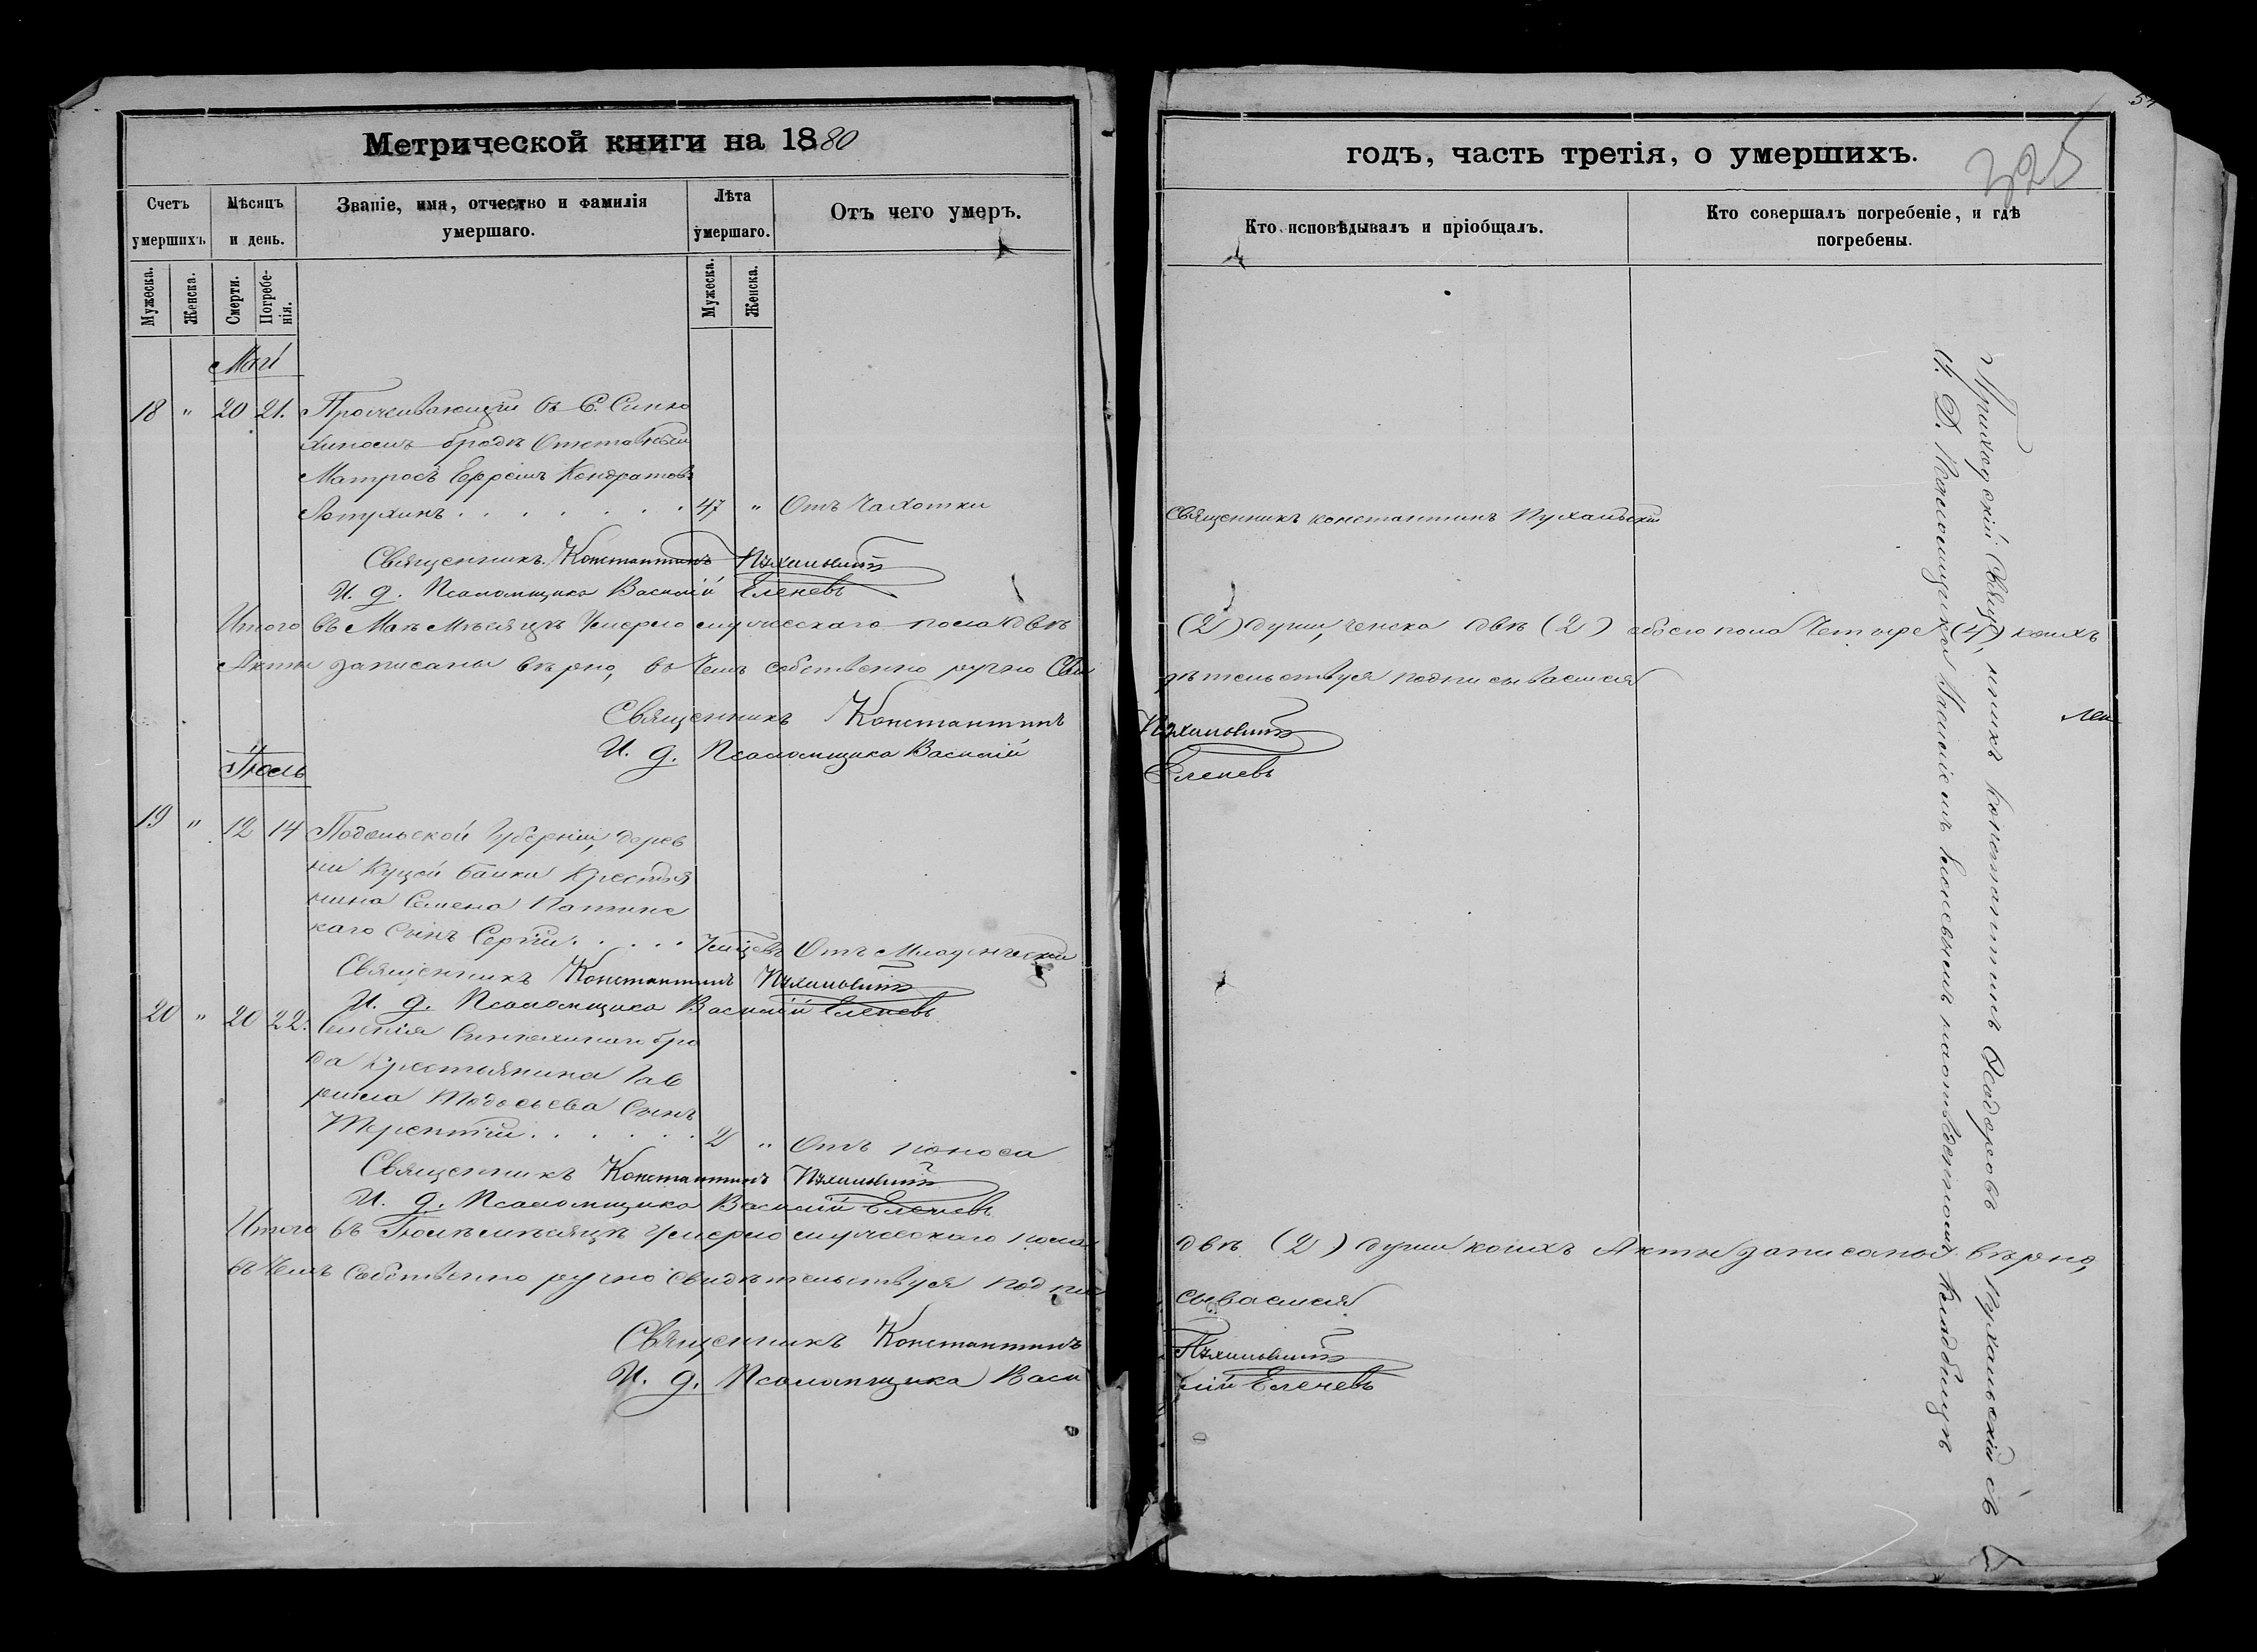 Метрической книги на 1880
Счетъ умершихъ
Мѣсяцъ и день.
Званіе, имя, отчество и фамилія умершаго.
Лѣта умершаго.
Отъ чего умеръ.
Мужеска.
Женска.
Смерти.
Погребе-
нія.
Мужеска.
Женска.
Май
18 " 20 21. Проживающій въ С. Синю
хиномъ бродѣ Отставный
Матросъ Ефремъ Кондратовъ
Лотухинъ . . . . . . . 47 " Отъ Чахотки
Священникъ Константинъ Пухальскій
И. д. Псаломщика Василій Еленевъ
Итого въ Маѣ Мѣсяцѣ Умерло мужескаго пола двѣ
Акты записаны вѣрно, въ чемъ собственно ручно Сви
Священникъ Константинъ
И. д. Псаломщика Василій
Іюль
19 " 12 14 Подольской Губерніи, дерев
ни Куцой балки Крестья
нина Семена
каго Сынъ Сергій . . . . . Отъ Младенческой
Священникъ Константинъ Пухальскій
И. д. Псаломщика Василій Еленевъ
20 " 20 22. Селенія Синюхина бро
да Крестьянина Гав
рiила Тодосьева Сынъ
Терентій . . . . . . 2 " Отъ поноса
Священникъ Константинъ Пухальскій
И. д. Псаломщика Василій Еленевъ
Итого въ Іюлѣ мѣсяцѣ Умерло мужескаго пола
въ Чемъ Собственно ручно свидѣтельствуя под пи
Священникъ Константинъ
И. д. Псаломщика Васи
54
325
годъ, часть третія, о умершихъ.
Кто исповѣдывалъ и пріобщалъ.
Кто совершалъ погребеніе, и гдѣ
погребены.
Священникъ Константинъ Пухальскій
(2) души, женска двѣ (2) обоего пола Четыре (4), коихъ
дѣтельствуя подписываемся
Пухальскій
Еленевъ
двѣ (2) души коихъ Акты записаны вѣрно,
сываемся
Пухальскій
лій Еленевъ
Приходскій Священникъ Константинъ Ѳеодоровъ Пухальскій съ
И. Д. Псаломщика Василіемъ Еленевымъ на отведенномъ кладбищѣ